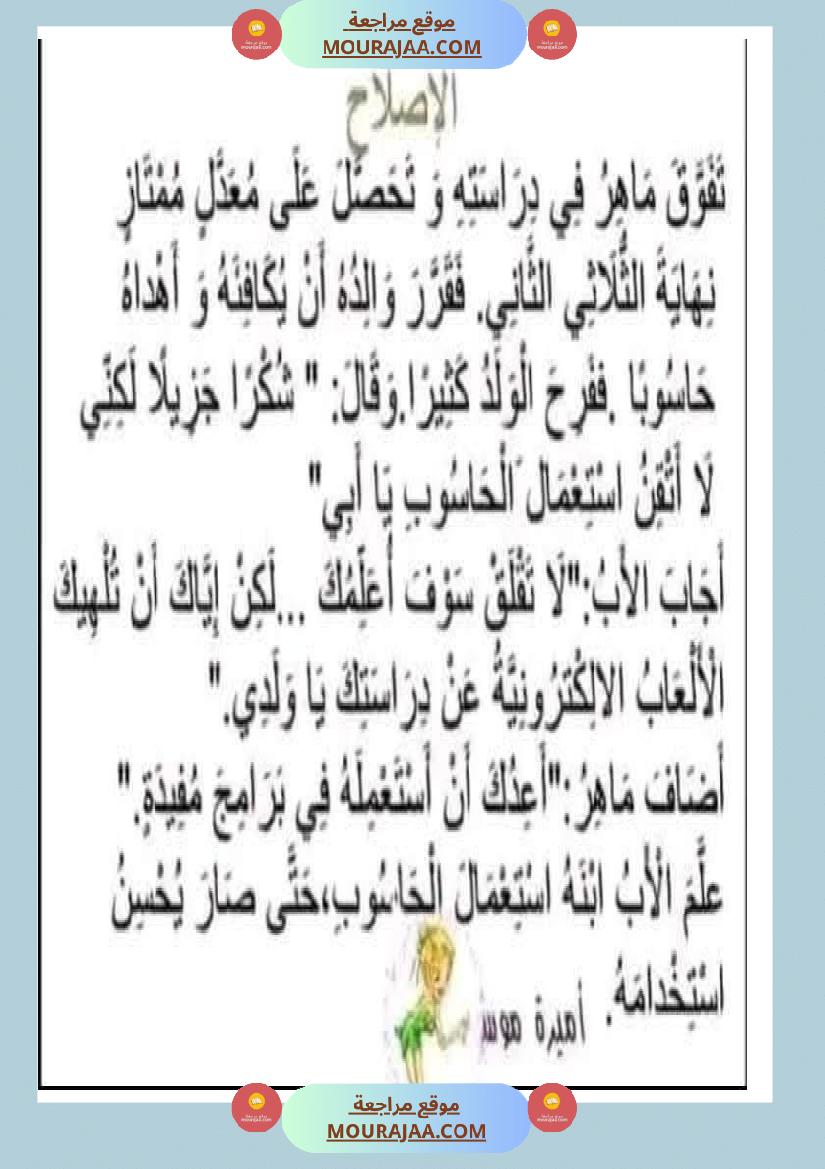 موقع مراجعة
MOURAJAA.COM
الإصلاح
تَفَوَّقَ مَاهِرُ فِي دِرَاسَتِهِ وَ تَحَصَّلَ عَلَى مُعَدَّلٍ مُمْتَازٍ
نِهَايَةَ الثُّلَاثِي الثَّانِي. فَقَرَّرَ وَالِدُهُ أَنْ يُكَافِئَهُ وَ أَهْداهُ
حَاسُوبًا .ففَرِحَ الْوَلَدُ كَثِيرًا.وَقَالَ: " شُكْرًا جَزِيلًا لَكِنِّي
لَا أَتْقِنُ اسْتِعْمَال َالْحَاسُوبِ يَا أَبِي"
أَجَابَ الأَبُ:"لَا تَقْلَقْ سَوْفَ أُعَلِّمُكَ ...لَكِنْ إِيَّاكَ أَنْ تُلْهِيكَ
الْأَلْعَابُ الالِكْتَرُونِيَّةُ عَنْ دِرَاسَتِكَ يَا وَلَدِي."
أَضَافَ مَاهِرُ:"أَعِدُكَ أَنْ أَسْتَعْمِلَهُ فِي بَرَامِجَ مُفِيدَةٍ."
علَّمَ الْأَبُ ابْنَهُ اسْتِعْمَالَ الْحَاسُوبِ،حَتَّى صَارَ يُحْسِنُ
اسْتِخْدامَهُ.
أميرة
موقع مراجعة
MOURAJAA.COM